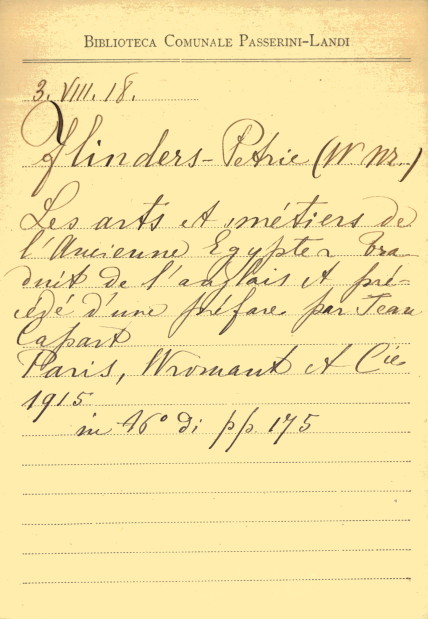 BIBLIOTECA COMUNALE PASSERINI-LANDI
3. VIII. 18.
Flinders-Petrie (W. Mr.)
Les arts et métiers de
l'Ancienne Egypter tra-
duit de l'anglais et pré-
cédé d'une préface par Jean
Capart
Paris, Wromant et Cie
1915
in 16° di pp. 175